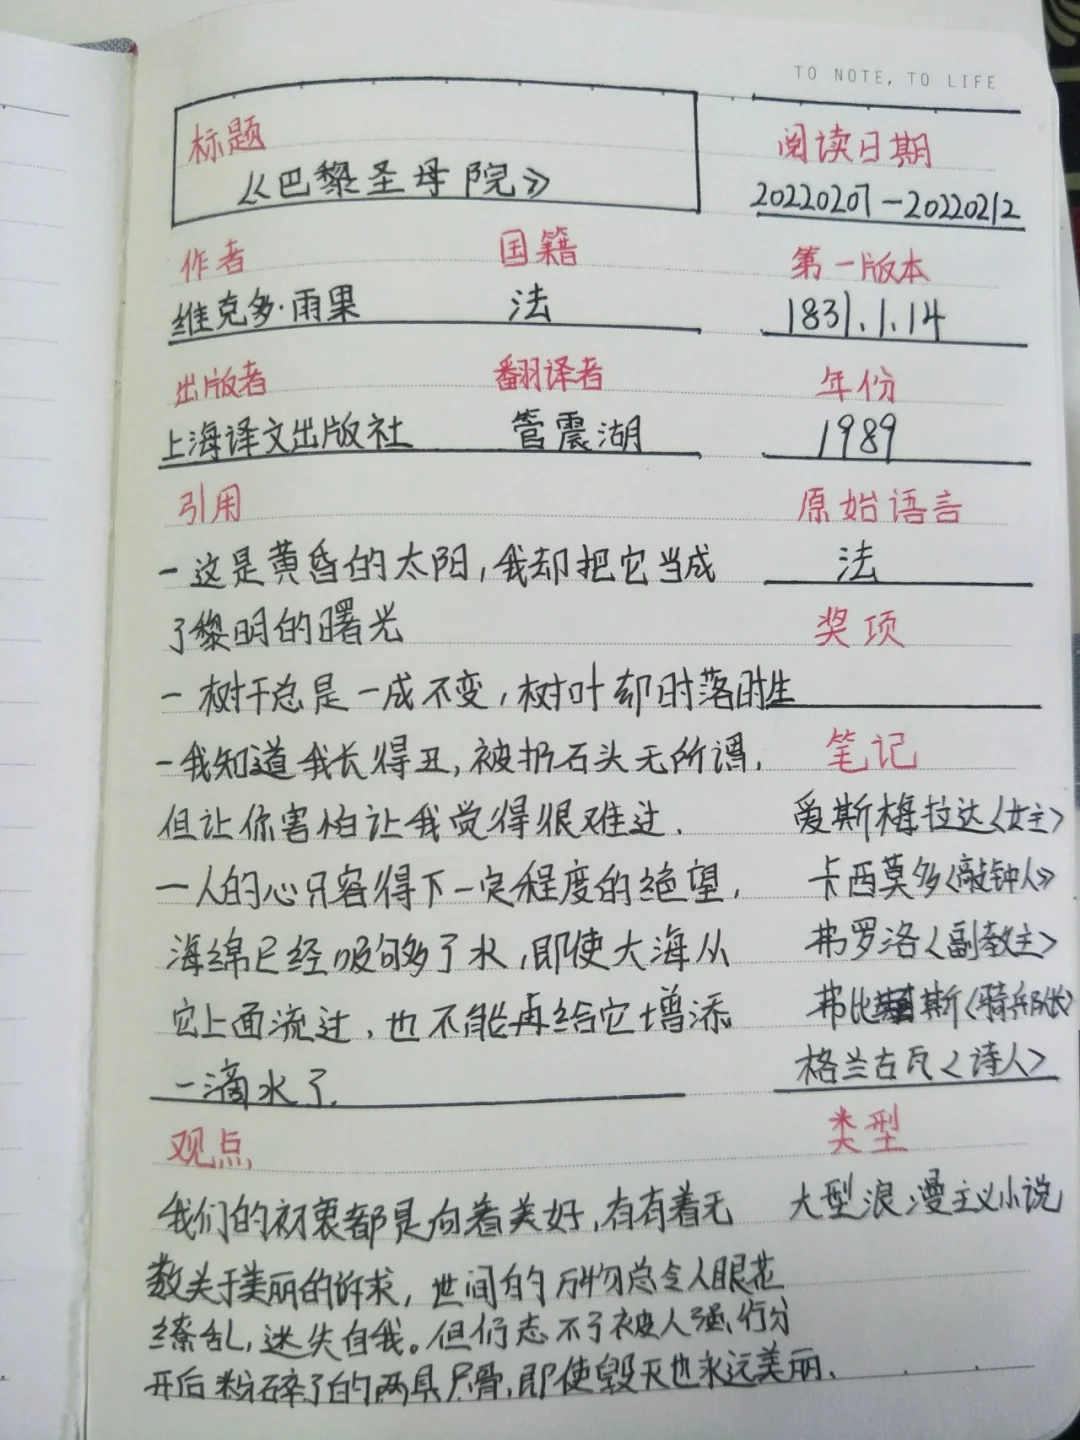 TO NOTE, TO LIFE
标题
《巴黎圣母院》
阅读日期
20220207-20220212
作者 国籍 第一版本
维克多·雨果 法 1831.1.14
出版者 翻译者 年份
上海译文出版社 管震湖 1989
引用 原始语言
-这是黄昏的太阳,我却把它当成 法
了黎明的曙光 奖项
-树干总是一成不变,树叶却时落时生
-我知道我长得丑,被扔石头无所谓, 笔记
但让你害怕让我觉得很难过. 爱斯梅拉达<女主>
一人的心只容得下一定程度的绝望, 卡西莫多<敲钟人>
海绵已经吸够了水,即使大海从 弗罗洛<副教主>
它上面流过,也不能再给它增添 弗比斯<骑兵队长>
一滴水了. 格兰古瓦<诗人>
观点 类型
我们的初衷都是向着美好,有着无 大型浪漫主义小说
数关于美丽的诉求,世间的万物总令人眼花
缭乱,迷失自我。但们忘不了被人强行分
开后粉碎了的两具尸骨,即使毁灭也永远美丽.